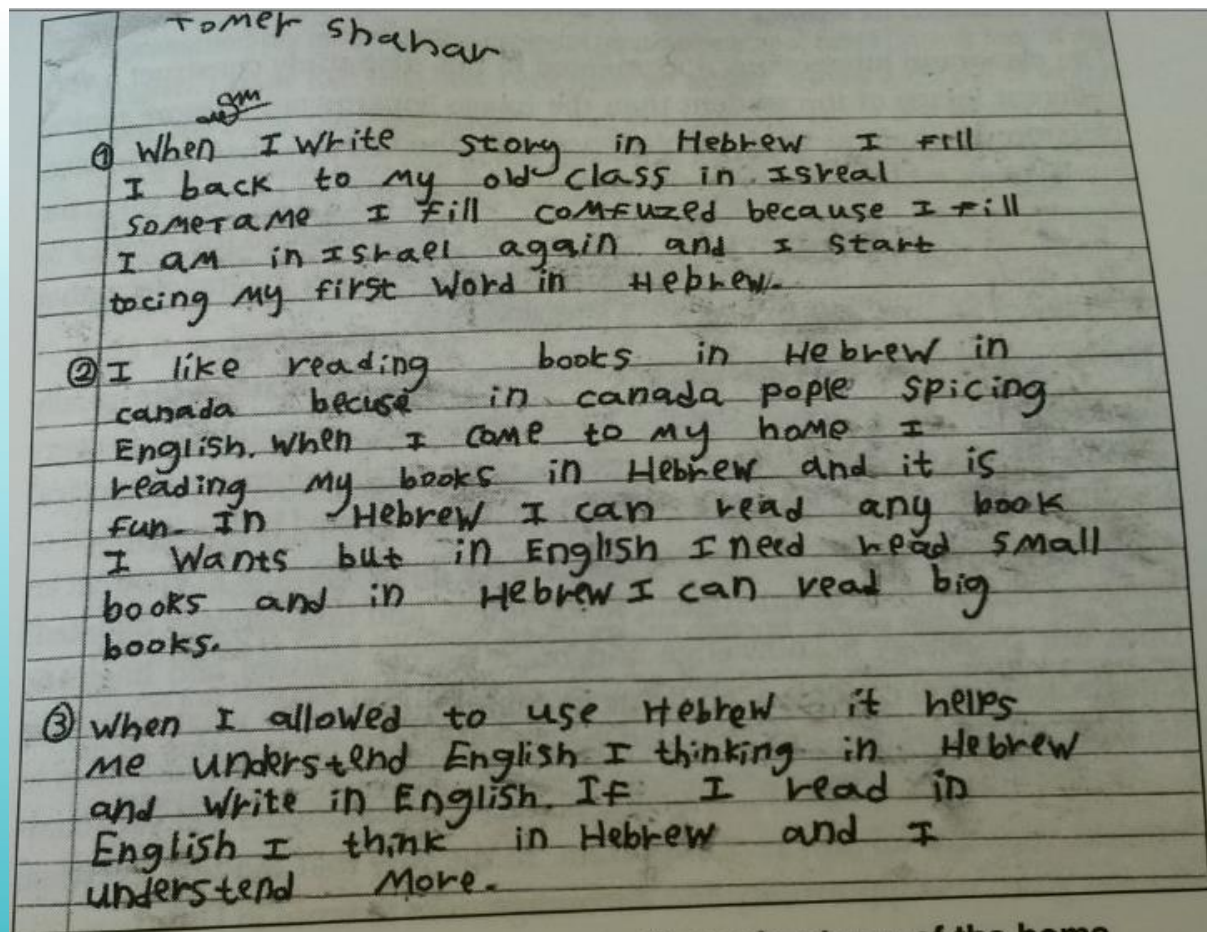 Tomer Shahar
am
① When I write story in Hebrew I fill
I back to my old class in Isreal
sometame I fill comfuzed because I fill
I am in Israel again and I start
tocing my first word in Hebrew.
② I like reading books in Hebrew in
canada becuse in canada pople spicing
English. When I come to my home I
reading my books in Hebrew and it is
fun. In Hebrew I can read any book
I wants but in English I need read small
books and in Hebrew I can read big
books.
③ When I allowed to use Hebrew it helps
me understend English I thinking in Hebrew
and write in English. If I read in
English I think in Hebrew and I
understend more.
of the home